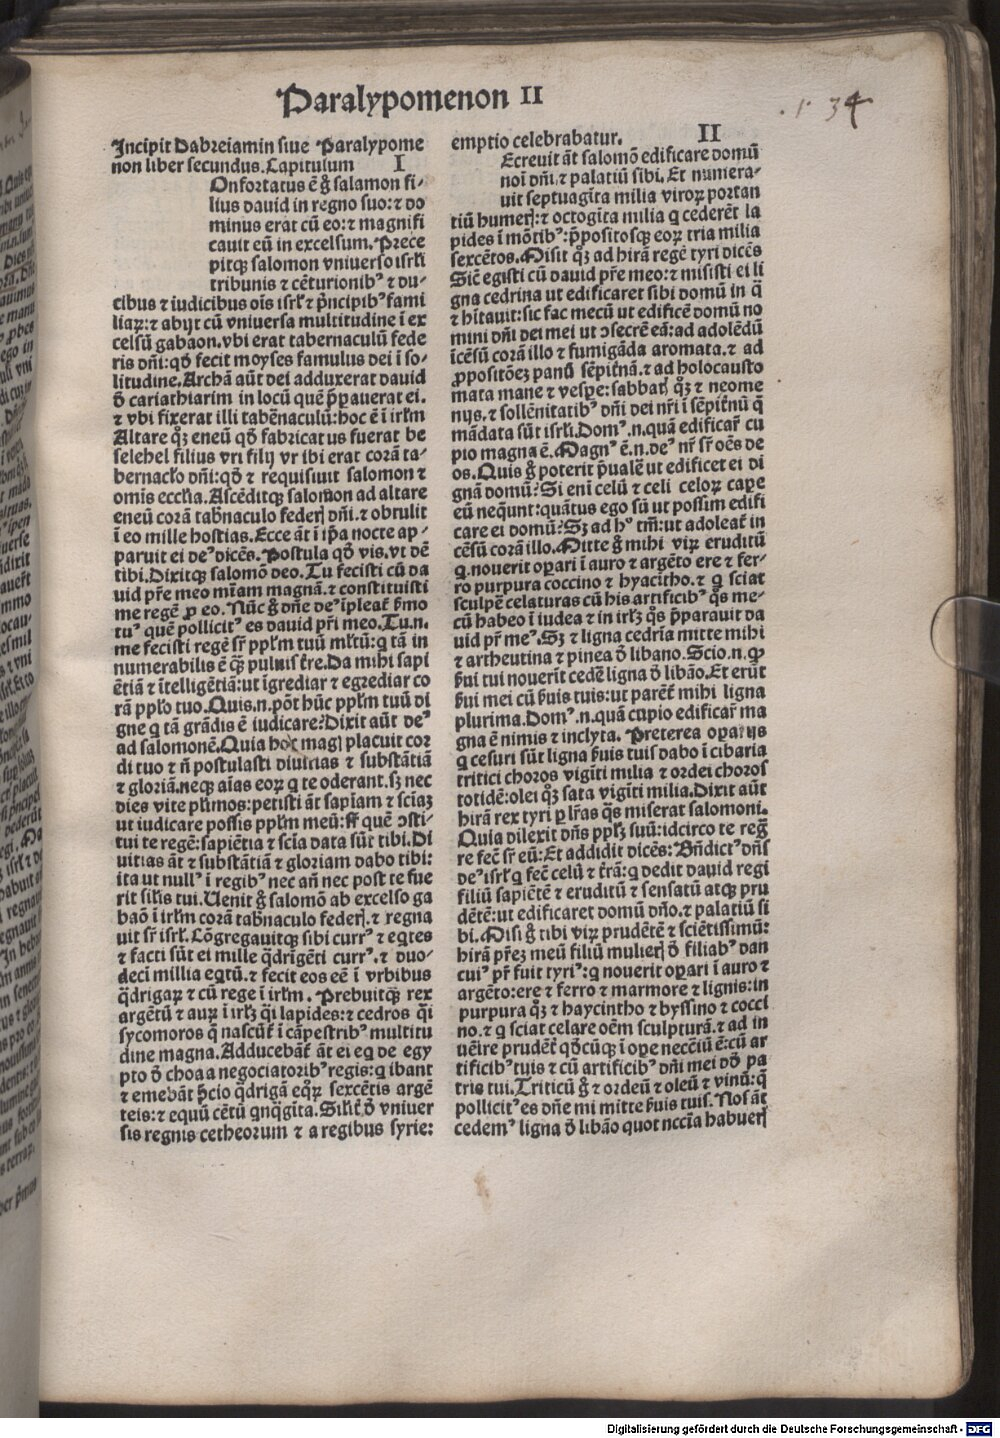 Paralypomenon II
134
Incipit Dabreiamin siue Paralypome
non liber secundus. Capitulum I
Onfortatus ē g̊ salamon fi-
lius dauid in regno suo: ⁊ do
minus erat cū eo: ⁊ magnifi
cauit eū in excelsum. Prece
pitqꝫ salomon vniuerso isrł̄i
tribunis ⁊ cēturionibꝰ ⁊ du-
cibus ⁊ iudicibus oīs isrł ⁊ p̄ncipibꝰ fami
liaꝝ: ⁊ abijt cū vniuersa multitudine ī ex
celsū gabaon. vbi erat tabernaculū fede
ris dn̄i: qd̄ fecit moyses famulus dei ī so-
litudine. Archā aūt dei adduxerat dauid
d̄ cariathiarim in locū quē p̄pauerat ei.
⁊ vbi fixerat illi tab̄enaculū: hoc ē ī irłm
Altare qꝫ eneū qd̄ fabricatus fuerat be
selehel filius vri filij vr ibi erat corā ta-
bernacło dn̄i: qd̄ ⁊ requisiuit salomon ⁊
omīs eccłia. Ascēditqꝫ salomon ad altare
eneū corā tab̄naculo federꝭ dn̄i. ⁊ obtulit
ī eo mille hostias. Ecce āt ī ip̄a nocte ap-
paruit ei deꝰ dicēs. Postula qd̄ vis. vt dē
tibi. Dixitqꝫ salomō deo. Tu fecisti cū da
uid pr̄e meo mīam magnā. ⁊ constituisti
me regē ꝓ eo. Nūc g̊ dn̄e deꝰ īpleat̄ ꝑmo
tuꝰ quē pollicitꝰ es dauid pr̄i meo. Tu .n.
me fecisti regē sr̄ pplm̄ tuū młtū: q tā in
numerabilis ē qꝫ puluis t̄re. Da mihi sapi
ētiā ⁊ ītelligētiā: ut īgrediar ⁊ egrediar co
rā ppło tuo. Quis .n. pōt hūc ppłm tuū di
gne q tā grādis ē iudicare? Dixit aūt deꝰ
ad salomonē. Quia hoc magꝭ placuit cor
di tuo ⁊ n̄ postulasti diuitias ⁊ substātiā
⁊ gloriā. neqꝫ aīas eoꝝ q te oderant. sꝫ nec
dies vite pl̄imos: petisti āt sapīam ⁊ scīaꝫ
ut iudicare possis ppłm meū: sr̄ quē ɔsti-
tui te regē: sapiētia ⁊ scīa data sūt tibi. Di
uitias āt ⁊ substātiā ⁊ gloriam dabo tibi:
ita ut nullꝰ ī regibꝰ nec an̄ nec post te fue
rit silis tui. Uenit g̊ salomō ab excelso ga
baō ī irłm corā tab̄naculo federꝭ. ⁊ regna
uit sr̄ isrł. Cōgregauitqꝫ sibi currꝰ ⁊ eq̄tes
⁊ facti sūt ei mille q̄drigēti currꝰ. ⁊ duo-
decī millia eq̄tū. ⁊ fecit eos eē ī vrbibus
q̄drigaꝝ ⁊ cū rege ī irłm. Prebuitqꝫ rex
argētū ⁊ auꝝ ī irłꝫ q̄i lapides: ⁊ cedros q̄i
sycomoros q̄ nascūt̄ ī cāpestribꝰ multitu
dine magna. Adducebāt̄ āt ei eq de egy
pto d̄ choaa negociatoribꝰ regis: q ibant
⁊ emebāt p̄cio q̄drigā eqꝝ sexcētis argē
teis: ⁊ equū cētū qnq̄gīta. Silit̄ d̄ vniuer
sis regnis cetheorum ⁊ a regibus syrie:
emptio celebrabatur. II
Ecreuit āt salomō edificare domū
noī dn̄i. ⁊ palatiū sibi. Et numera-
uit septuagīta milia viroꝝ portan
tiū humerꝭ: ⁊ octogīta milia q cederēt la
pides ī mōtibꝰ: p̄positosqꝫ eoꝝ tria milia
sexcētos. Misit qꝫ ad hirā regē tyri dicēs
Sic̄ egisti cū dauid pr̄e meo: ⁊ misisti ei li
gna cedrina ut edificaret sibi domū in q̄
⁊ hītauit: sic fac mecū ut edificē domū no
mini dn̄i dei mei ut ɔsecrē eā: ad adolēdū
īcēsū corā illo ⁊ fumigāda aromata. ⁊ ad
ꝓpositōeꝫ panū sēpit̄nā. ⁊ ad holocausto
mata mane ⁊ vesꝑe: sabbatꝭ qꝫ ⁊ neome
nijs. ⁊ sollēnitatibꝰ dn̄i dei nr̄i ī sēpit̄nū q̄
mādata sūt isrłi. Domꝰ .n. quā edificar̄ cu
pio magna ē. Magnꝰ ē .n. deꝰ nr̄ sr̄ oēs de
os. Quis g̊ poterit p̄ualē ut edificet ei di
gnā domū? Si enī celū ⁊ celi celoꝝ caꝑe
eū neq̄unt: quātus ego sū ut possim edifi
care ei domū? Sꝫ ad hᵒ tm̄: ut adoleat̄ in
cēsū corā illo. Mitte g̊ mihi viꝝ eruditū
q nouerit oꝑari ī auro ⁊ argēto ere ⁊ fer-
ro purpura coccino ⁊ hyacītho. ⁊ q sciat
sculpē celaturas cū his artificibꝰ qs̄ me-
cū habeo ī iudea ⁊ in irłꝫ qs̄ p̄parauit da
uid pr̄ meꝰ. Sꝫ ⁊ ligna cedrīa mitte mihi
⁊ artheutina ⁊ pinea d̄ libano. Scio .n. ꝙ
ẜui tui nouerīt cedē ligna d̄ libāo. Et erūt
ẜui mei cū ẜuis tuis: ut parēt̄ mihi ligna
plurima. Domꝰ .n. quā cupio edificar̄ ma
gna ē nimis ⁊ inclyta. Preterea oꝑarijs
q cesuri sūt ligna ẜuis tuis dabo ī cibaria
tritici choros vigīti milia ⁊ ordei choros
totidē: olei qꝫ sata vigīti milia. Dixit aūt
hirā rex tyri ꝑ lr̄as qs̄ miserat salomoni.
Quia dilexit dn̄s pplꝫ suū: idcirco te reḡ
re fec̄ sr̄ eū: Et addidit dicēs: Bn̄dictꝰ dn̄s
deꝰ isrł q fec̄ celū ⁊ t̄rā: q dedit dauid regi
filiū sapiētē ⁊ eruditū ⁊ sensatū atqꝫ pru
dētē: ut edificaret domū dn̄o. ⁊ palatiū si
bi. Misi g̊ tibi viꝝ prudētē ⁊ sciētissimū:
hirā pr̄eꝫ meū filiū mulierꝭ d̄ filiabꝰ dan
cuiꝰ pr̄ fuit tyriꝰ: q nouerit oꝑari ī auro ⁊
argēto: ere ⁊ ferro ⁊ marmore ⁊ lignis: in
purpura qꝫ ⁊ haycintho ⁊ byssino ⁊ cocci
no. ⁊ q sciat celare oēm sculpturā. ⁊ ad in
uēire prudēt̄ qd̄cūqꝫ ī oꝑe necēiū ē: cū ar
tificibꝰ tuis ⁊ cū artificibꝰ dn̄i mei dd̄ pa
tris tui. Triticū g̊ ⁊ ordeū ⁊ oleū ⁊ vinū: q̄
pollicitꝰ es dn̄e mi mitte ẜuis tuis. Nos āt
cedemꝰ ligna d̄ libāo quot nccīa habuerꝭ
Digitalisierung gefördert durch die Deutsche Forschungsgemeinschaft - DFG